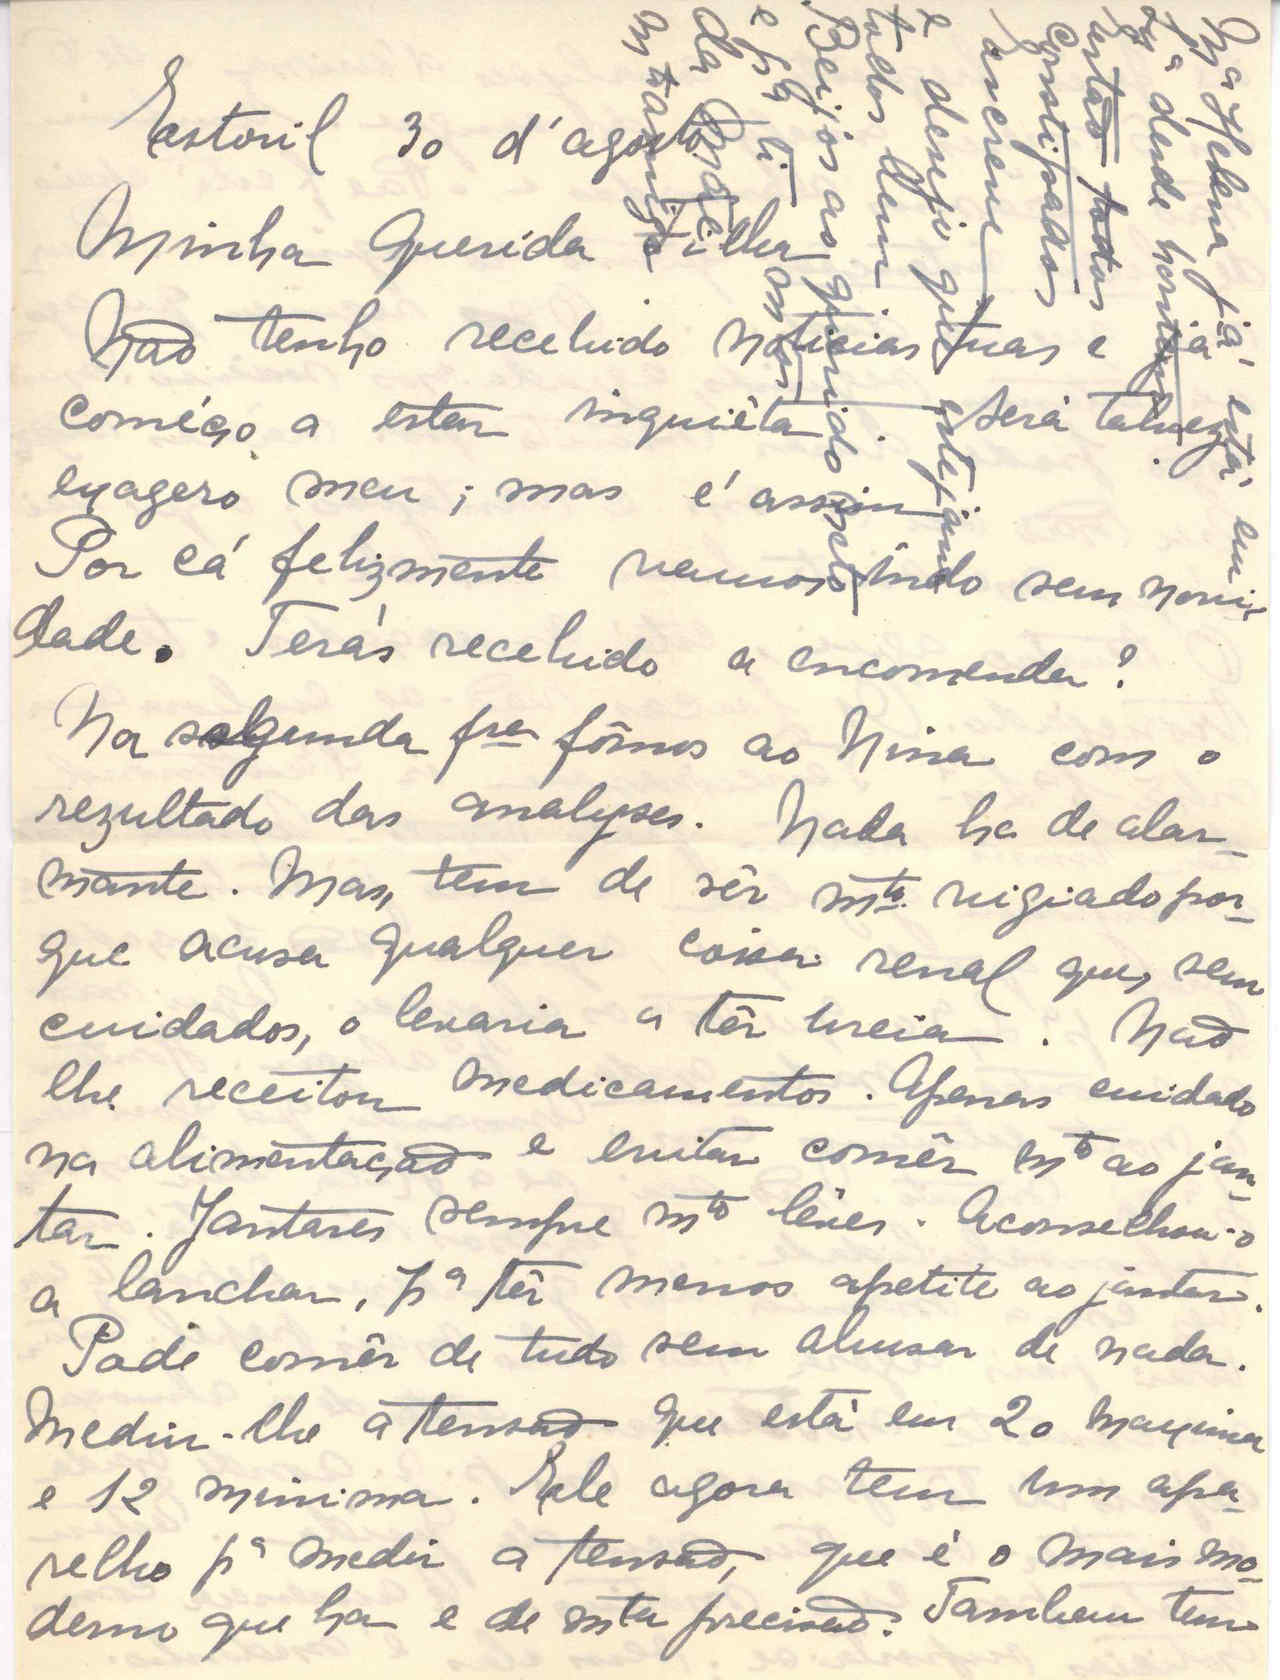 Estoril 30 d'agosto
Minha Querida Filha
Não tenho recebido noticias tuas e já
coméço a estar inquiéta. Será talvez
exagero meu; mas é assim.
Por cá felizmente vamos indo sem novi-
dade. Terás recebido a encomenda?
Na segunda fra fômos ao Nina com o
rezultado das analyses. Nada ha de alar-
mante. Mas, tem de sêr mto. vigiado por-
que acusa qualquer coisa renal que, sem
cuidados, o levaria a têr ureia. Não
lhe receitou medicamentos. Apenas cuidado
na alimentação e evitar comêr mto ao jan-
tar. Jantares sempre mto léves. Aconselhou-o
a lanchar, pa têr menos apetite ao jantar.
Pode comêr de tudo sem abusar de nada.
Mediu-lhe a tensão que está em 20 maxima
e 12 minima. Ele agora tem um apa-
relho pa medir a tensão, que é o mais mo-
derno que ha e de mta precisão. Tambem tem
Ma Helena já está em
desde hontem
estão todos
constipados
Escreve
e desejo que estejam
todos bem
Beijos ao querido
e pa ti mtos
da Mãe
mto amiga